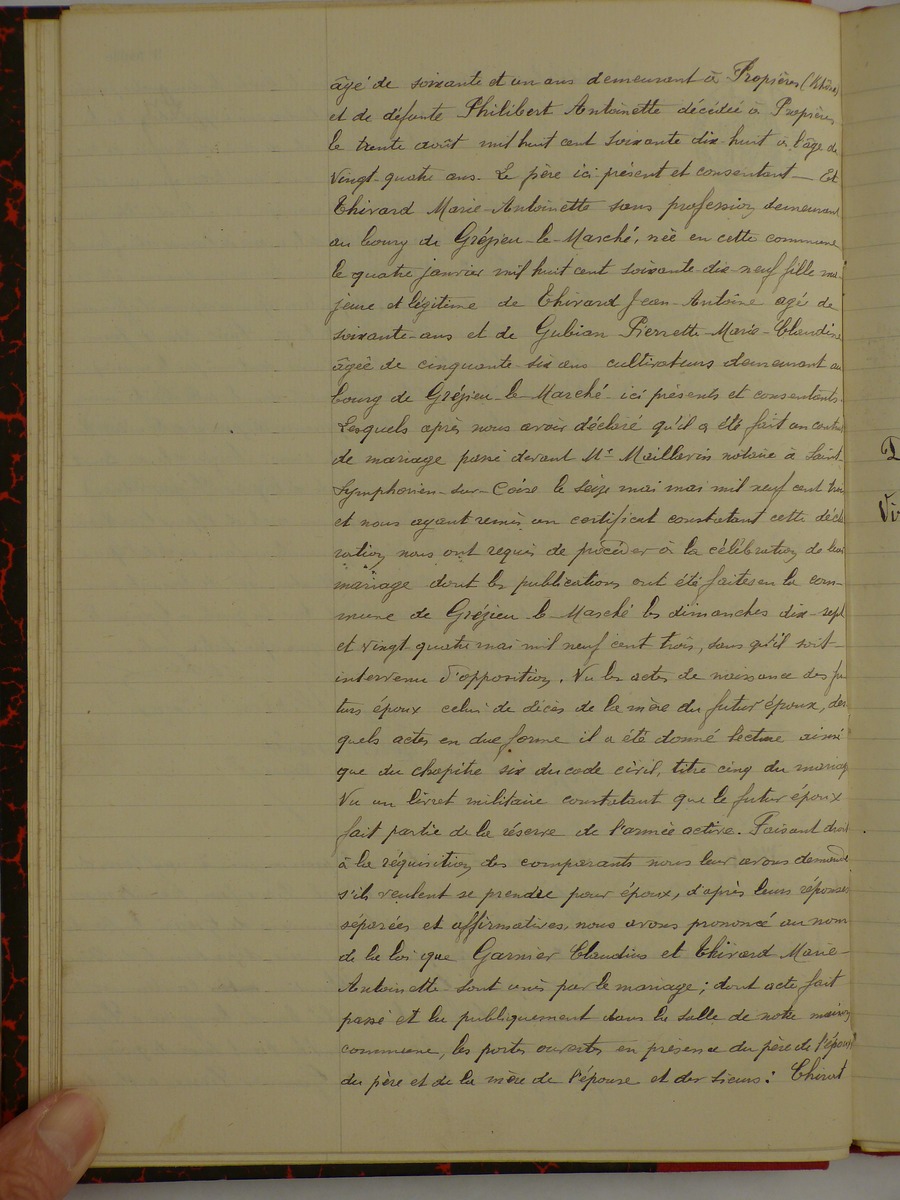 âgé de soixante et un ans demeurant à Propières (Rhône)
et de défunte Philibert Antoinette décédée à Propières
le trente août mil huit cent soixante dix-huit à l'âge de
vingt-quatre ans. Le père ici présent et consentant — Et
Thivard Marie-Antoinette sans profession demeurant
au bourg de Grézieu-le-Marché, née en cette commune
le quatre janvier mil huit cent soixante-dix-neuf fille ma-
jeure et légitime de Thivard Jean-Antoine agé de
soixante-ans et de Gubian Pierrette-Marie-Claudine
âgée de cinquante-six ans cultivateurs demeurant au
bourg de Grézieu-le-Marché ici présents et consentants.
Lesquels après nous avoir déclaré qu'il a été fait un contrat
de mariage passé devant Me Maillavin notaire à Saint-
Symphorien-sur-Coise le seize mai mai mil neuf cent trois
et nous ayant remis un certificat constatant cette décla
ration, nous ont requis de procéder à la célébration de leur
mariage dont les publications ont été faites en la com-
mune de Grézieu-le-Marché les dimanches dix-sept
et vingt-quatre mai mil neuf cent trois, sans qu'il soit
intervenu d'opposition. Vu les actes de naissance des fu
turs époux celui de décès de la mère du futur époux, des
quels actes en due forme il a été donné lecture ainsi
que du chapitre six du code civil, titre cinq du mariage
Vu un livret militaire constatant que le futur époux
fait partie de la réserve de l'armée active. Faisant droit
à la réquisition des comparants nous leur avons demandé
s'ils veulent se prendre pour époux, d'après leurs réponses
séparées et affirmatives, nous avons prononcé au nom
de la loi que Garnier Claudius et Thivard Marie-
Antoinette sont unis par le mariage; dont acte fait
passé et lu publiquement dans la salle de notre maison
commune, les portes ouvertes en présence du père de l'époux
du père et de la mère de l'épouse et des sieurs: Thivard
D
Vi